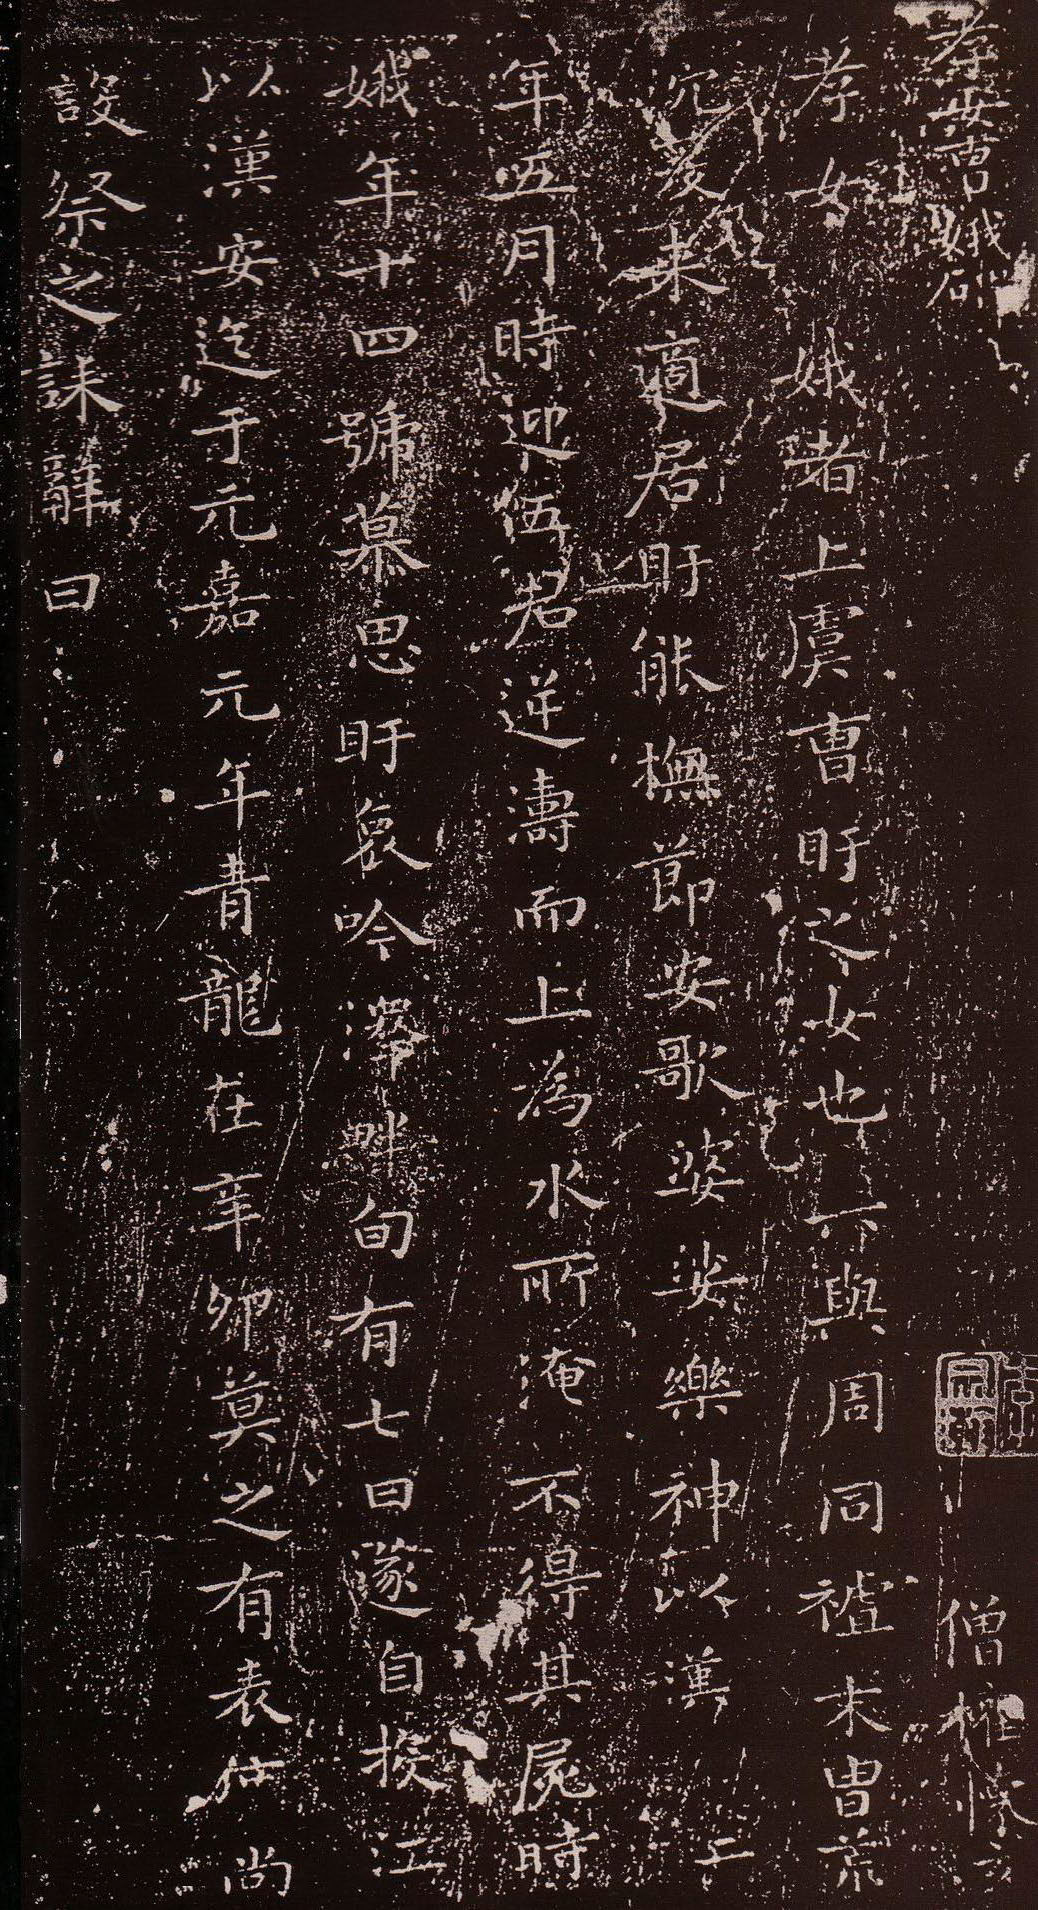 孝女曹娥碑
僧權
孝女娥者上虞曹盱之女也與周同祖末胄荒
沉爰来適居盱能撫節安歌婆娑樂神以漢二
年五月時迎伍君逆濤而上為水所淹不得其屍時
娥年十四號慕思盱哀吟澤畔旬有七日遂自投江
以漢安迄于元嘉元年青龍在辛卯莫之有表度尚
設祭之誄辭曰